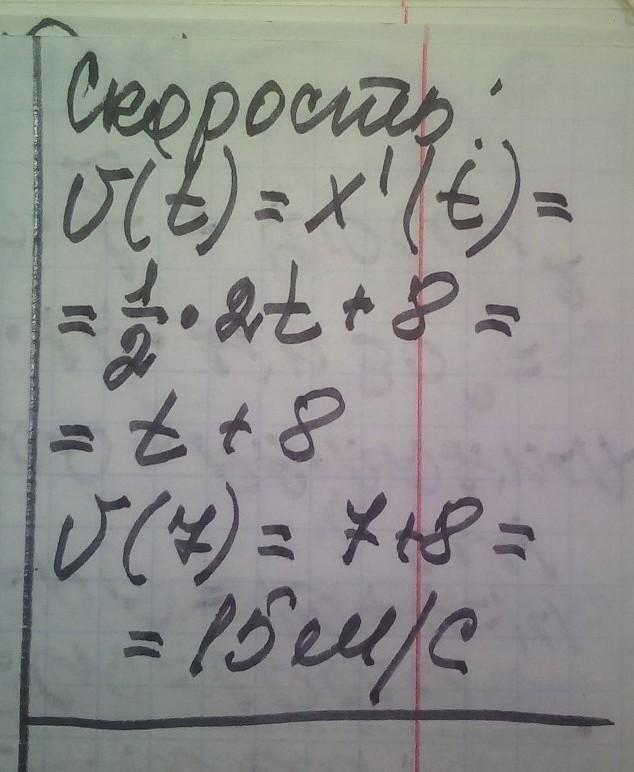 Скорость:
v(t) = x'(t) =
= 1/2 · 2t + 8 =
= t + 8
v(7) = 7+8 =
= 15 м/с